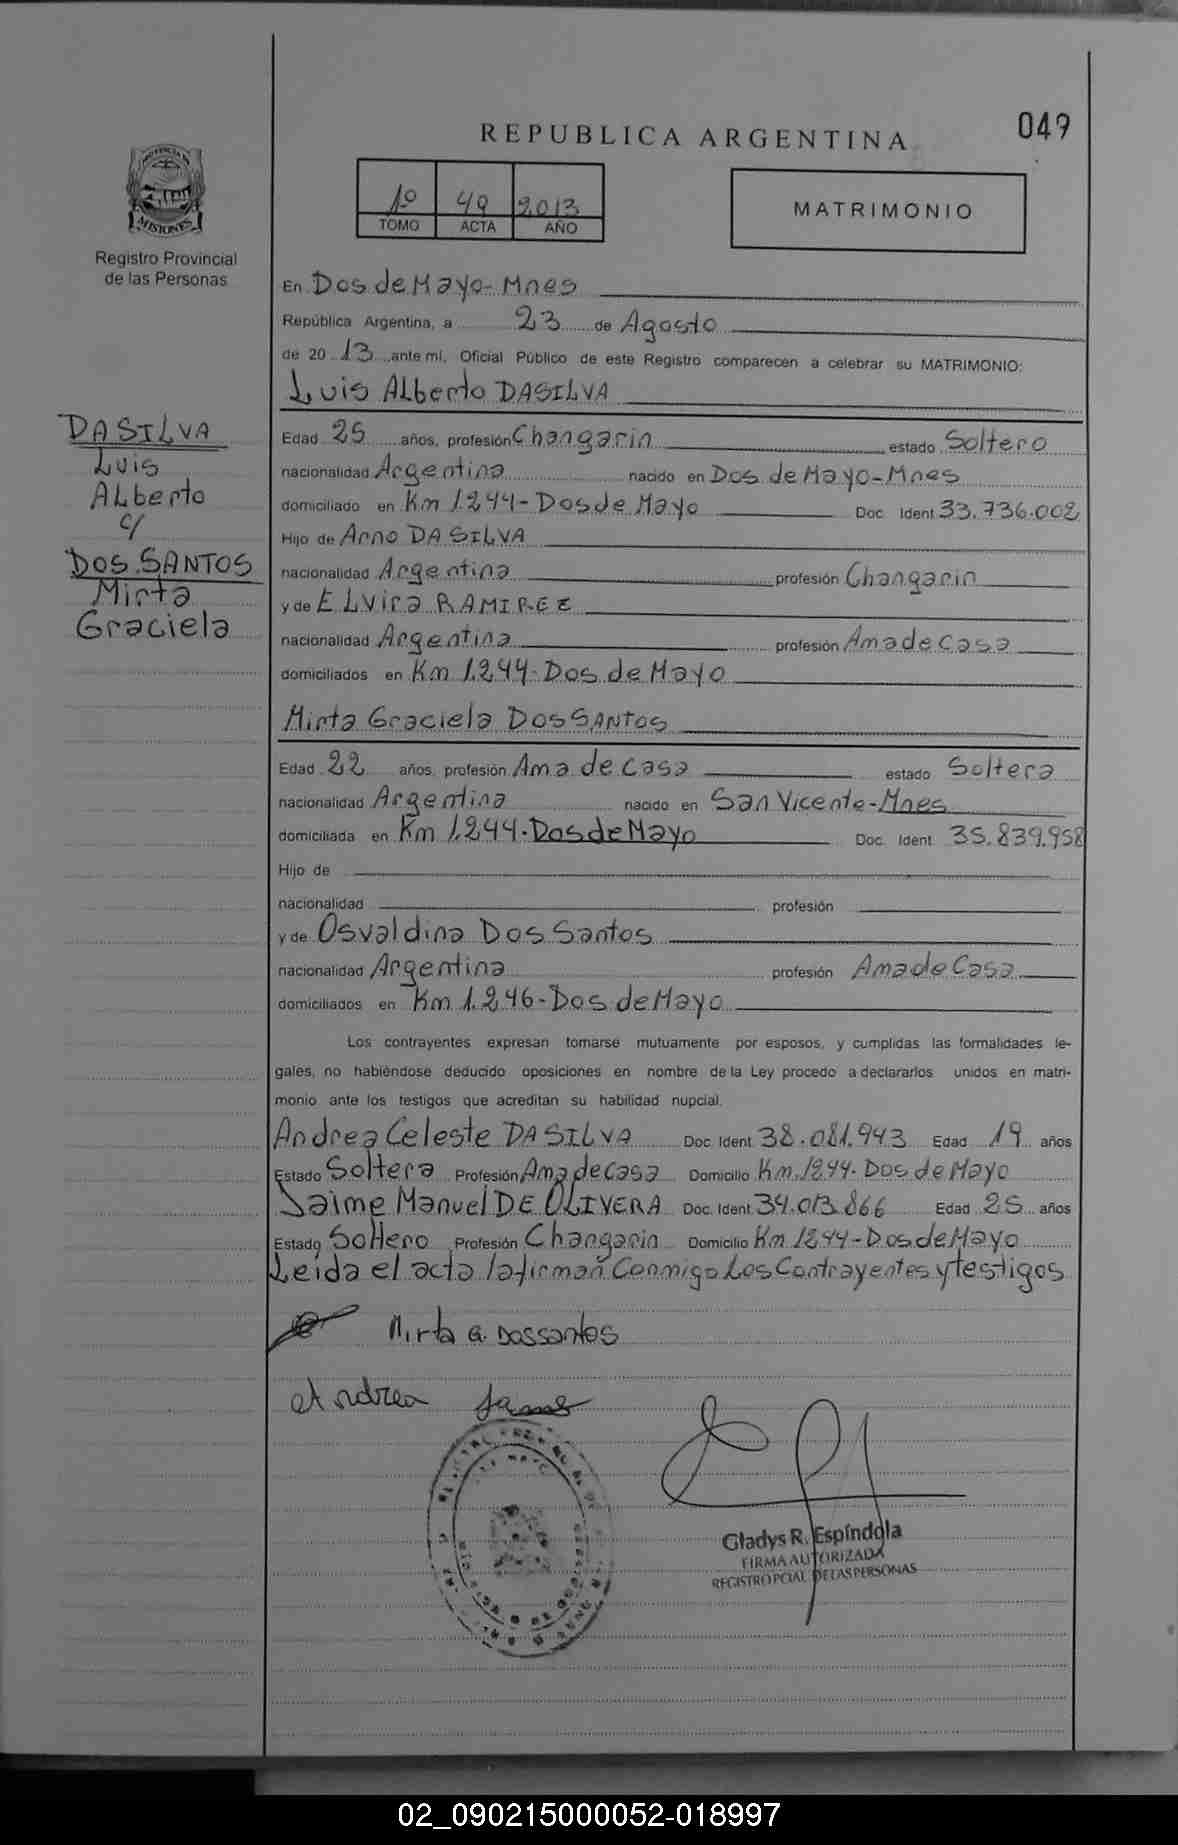 REPUBLICA ARGENTINA
049
1º 49 2013
TOMO ACTA AÑO
MATRIMONIO
PROVINCIA DE
MISIONES
Registro Provincial
de las Personas
En Dos de Mayo-Mnes
República Argentina, a 23 de Agosto
de 2013 ante mí, Oficial Público de este Registro comparecen a celebrar su MATRIMONIO:
Luis Alberto DASILVA
DASILVA
Luis
Alberto
c/
DOS SANTOS
Mirta
Graciela
Edad 25 años, profesión Changarin estado Soltero
nacionalidad Argentina nacido en Dos de Mayo-Mnes
domiciliado en Km 1.244-Dos de Mayo Doc. Ident 33.736.002
Hijo de Arno DASILVA
nacionalidad Argentina profesión Changarin
y de ELvira RAMIREZ
nacionalidad Argentina profesión Ama de Casa
domiciliados en Km 1.244-Dos de Mayo
Mirta Graciela DOS SANTOS
Edad 22 años, profesión Ama de casa estado Soltera
nacionalidad Argentina nacido en San Vicente-Mnes
domiciliada en Km 1.244-Dos de Mayo Doc. Ident 35.839.958
Hijo de
nacionalidad profesión
y de Osvaldina Dos Santos
nacionalidad Argentina profesión Ama de Casa
domiciliados en Km 1.246-Dos de Mayo
Los contrayentes expresan tomarse mutuamente por esposos, y cumplidas las formalidades le-
gales, no habiéndose deducido oposiciones en nombre de la Ley procedo a declararlos unidos en matri-
monio ante los testigos que acreditan su habilidad nupcial.
Andrea Celeste DASILVA Doc. Ident 38.081.943 Edad 19 años
Estado Soltera Profesión Ama de casa Domicilio Km.1244-Dos de Mayo
Jaime Manuel DE OLIVERA Doc. Ident 34.013.866 Edad 25 años
Estado Soltero Profesión Changarin Domicilio Km 1244-Dos de Mayo
Leida el acta la firman Conmigo Los Contrayentes y testigos
Mirta G. Dossantos
Andrea
Gladys R. Espíndola
FIRMA AUTORIZADA
REGISTRO PCIAL DE LAS PERSONAS
02_090215000052-018997